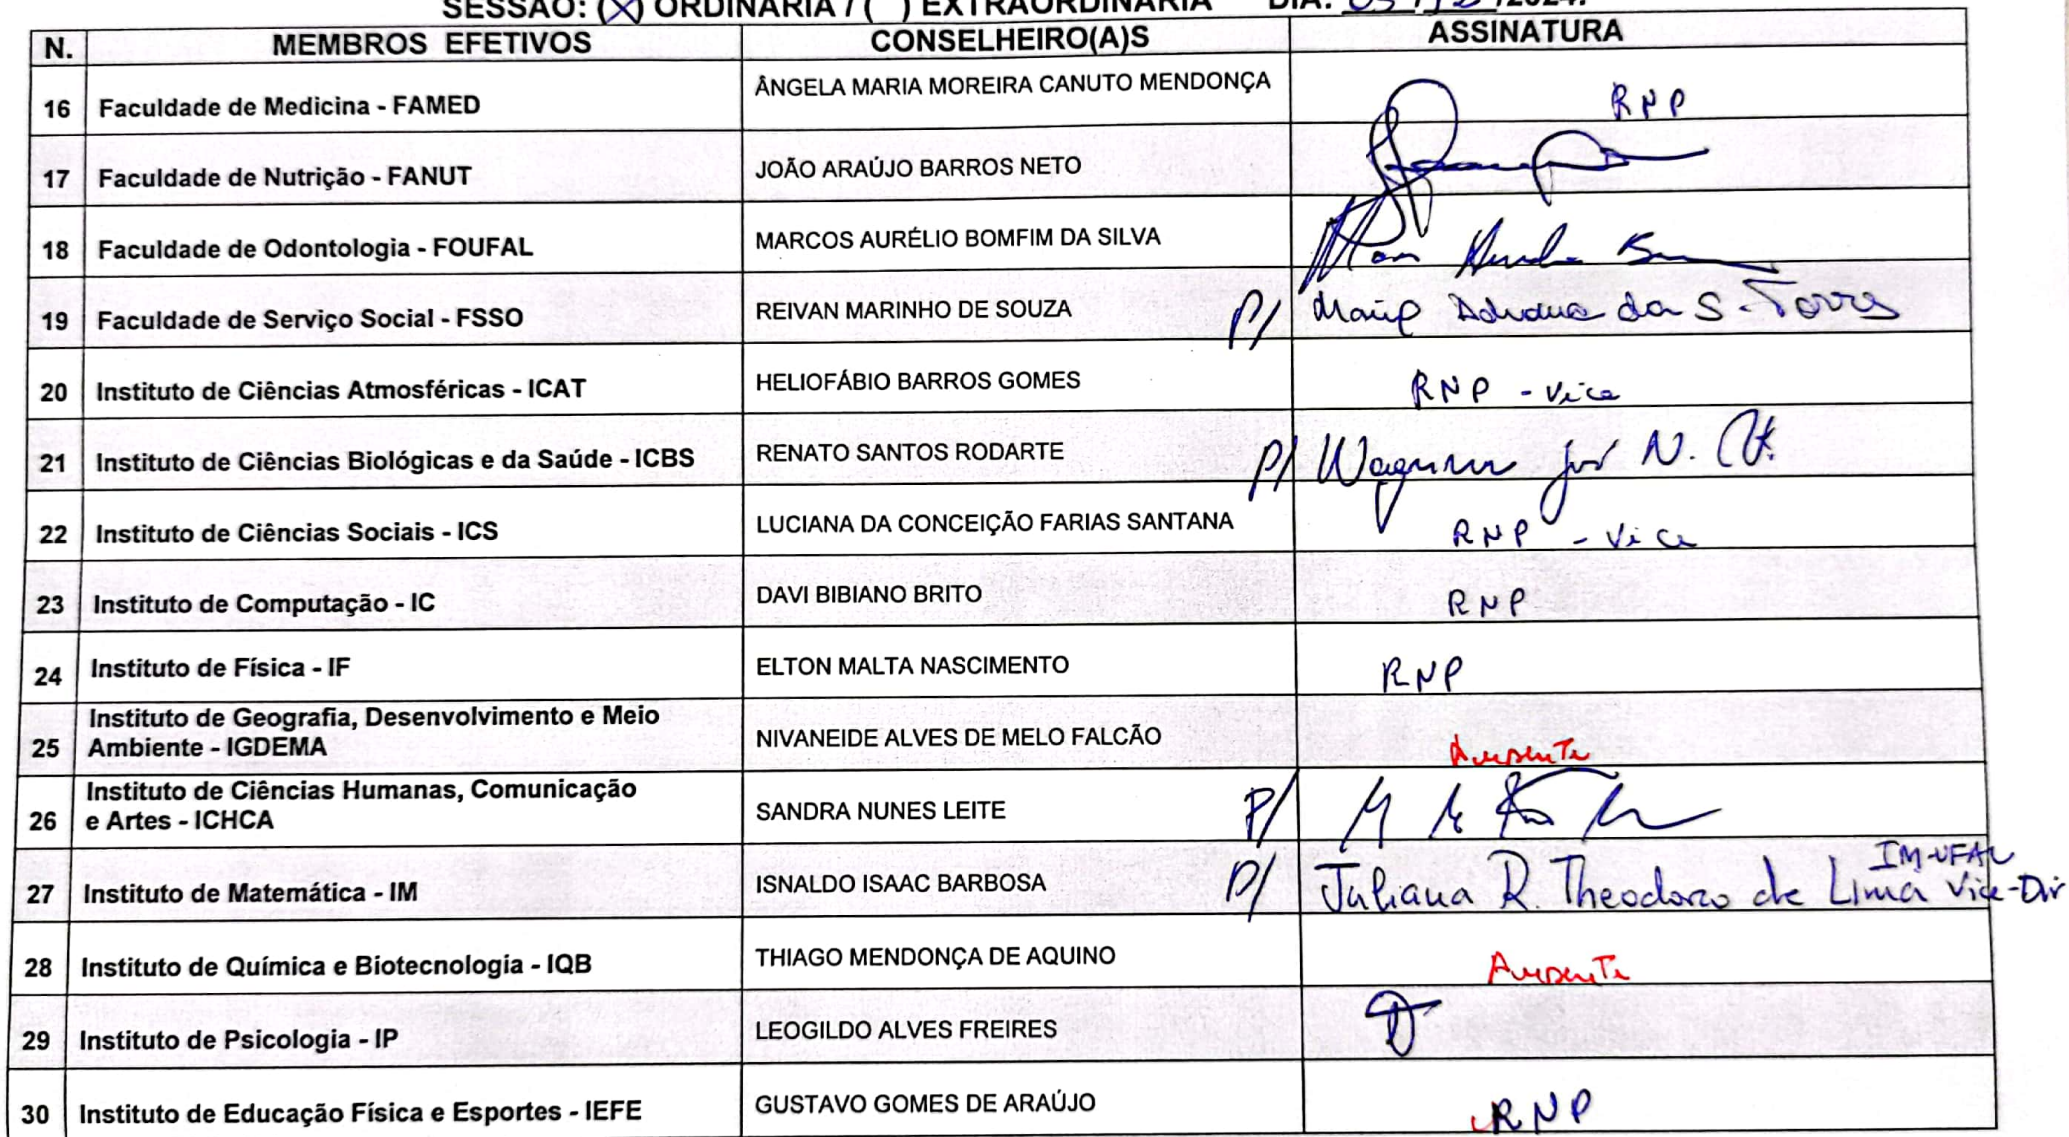 SESSÃO: (X) ORDINÁRIA / ( ) EXTRAORDINÁRIA DIA: /2024.
N. MEMBROS EFETIVOS CONSELHEIRO(A)S ASSINATURA
16 Faculdade de Medicina - FAMED ÂNGELA MARIA MOREIRA CANUTO MENDONÇA RNP
17 Faculdade de Nutrição - FANUT JOÃO ARAÚJO BARROS NETO
18 Faculdade de Odontologia - FOUFAL MARCOS AURÉLIO BOMFIM DA SILVA
19 Faculdade de Serviço Social - FSSO REIVAN MARINHO DE SOUZA P/ da S. Torres
20 Instituto de Ciências Atmosféricas - ICAT HELIOFÁBIO BARROS GOMES RNP - Vice
21 Instituto de Ciências Biológicas e da Saúde - ICBS RENATO SANTOS RODARTE P/ N.
22 Instituto de Ciências Sociais - ICS LUCIANA DA CONCEIÇÃO FARIAS SANTANA RNP - Vice
23 Instituto de Computação - IC DAVI BIBIANO BRITO RNP
24 Instituto de Física - IF ELTON MALTA NASCIMENTO RNP
Instituto de Geografia, Desenvolvimento e Meio
25 Ambiente - IGDEMA NIVANEIDE ALVES DE MELO FALCÃO Ausente
Instituto de Ciências Humanas, Comunicação
26 e Artes - ICHCA SANDRA NUNES LEITE P/
IM-UFAL
27 Instituto de Matemática - IM ISNALDO ISAAC BARBOSA P/ Juliana R. Theodoro de Lima Vice-Dir
28 Instituto de Química e Biotecnologia - IQB THIAGO MENDONÇA DE AQUINO Ausente
29 Instituto de Psicologia - IP LEOGILDO ALVES FREIRES
30 Instituto de Educação Física e Esportes - IEFE GUSTAVO GOMES DE ARAÚJO RNP